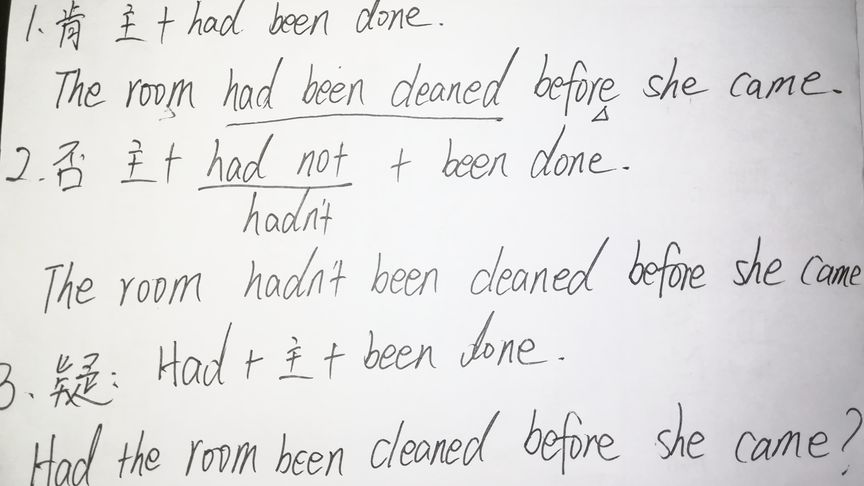 1. 肯 主 + had been done.
The room had been cleaned before she came.
2. 否 主 + had not + been done.
hadn't
The room hadn't been cleaned before she came
3. 疑: Had + 主 + been done.
Had the room been cleaned before she came?